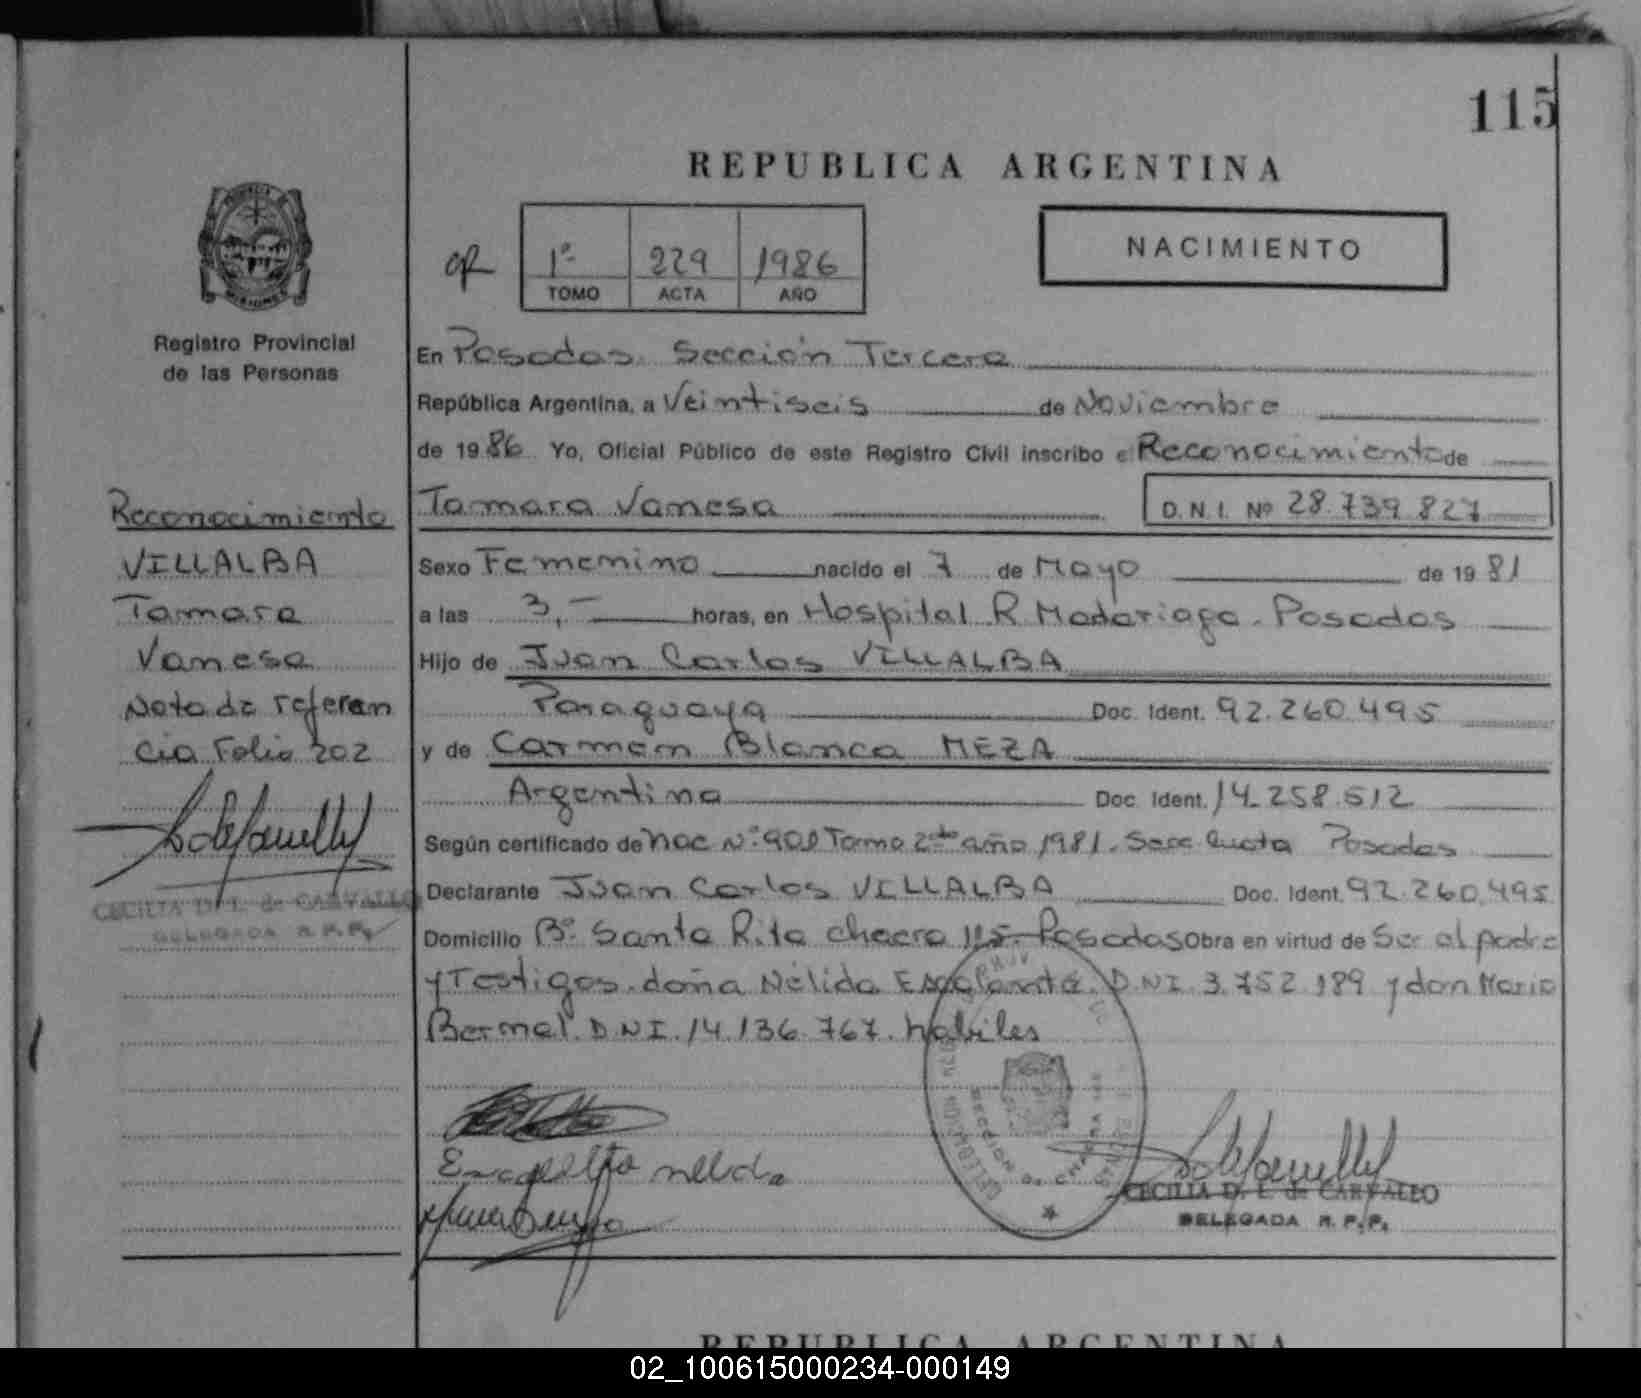 115
REPUBLICA ARGENTINA
1º 229 1986
TOMO ACTA AÑO
NACIMIENTO
MISIONES
Registro Provincial
de las Personas
En Posadas. Sección Tercera
República Argentina, a Veintiseis de Noviembre
de 1986 Yo, Oficial Público de este Registro Civil inscribo el Reconocimiento de
Tamara Vanesa D.N.I. Nº 28.739.827
Sexo Femenino nacido el 7 de Mayo de 1981
a las 3,- horas, en Hospital R Madariaga. Posadas
Hijo de Juan Carlos VILLALBA
Paraguaya Doc. Ident. 92.260.495
y de Carmen Blanca MEZA
Argentina Doc. Ident. 14.258.512
Según certificado de Nac Nº 901 Tomo 2do año 1981. Posadas
Declarante Juan Carlos VILLALBA Doc. Ident. 92.260.495
Domicilio Bº Santa Rita chacra 115. Posadas Obra en virtud de Ser el padre
y Testigos. doña Nélida Escalante. D.N.I. 3.752.189 y don Mario
Bernal. D.N.I. 14.136.767. habiles
Reconocimiento
VILLALBA
Tamara
Vanesa
Nota de referen
cia Folio 202
CECILIA D. L. de CARVALLO
DELEGADA R.P.P.
CECILIA D. L. de CARVALLO
DELEGADA R.P.P.
REPUBLICA ARGENTINA
02_100615000234-000149